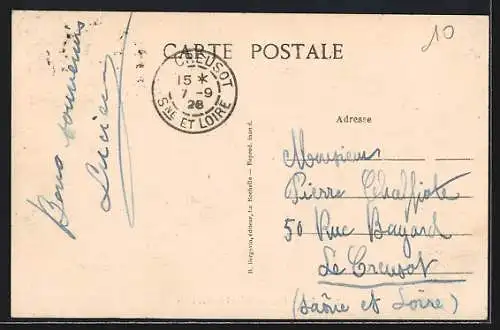 CARTE POSTALE
10
CREUSOT
15 *
7 -9
28
Sne ET LOIRE
Bons souvenirs
Lucien
Adresse
Monsieur
Pierre
50 Rue Bayard
Le Creusot
(Saône et Loire)
R. Bergevin, éditeur, La Rochelle — Reprod. interd.